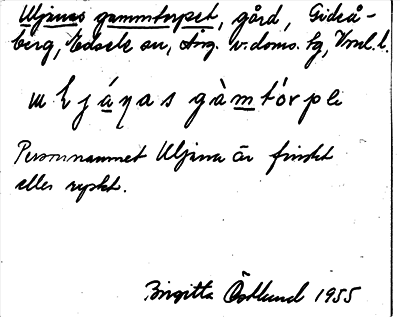 Uljanas gammtorpet, gård, Gideå-
berg, Edsele sn, Ång. v.doms. tg, Vnl. l.
u l j á n a s g à m t ó r p e
Personnamnet Uljana är finskt
eller ryskt.
Birgitta Östlund 1955